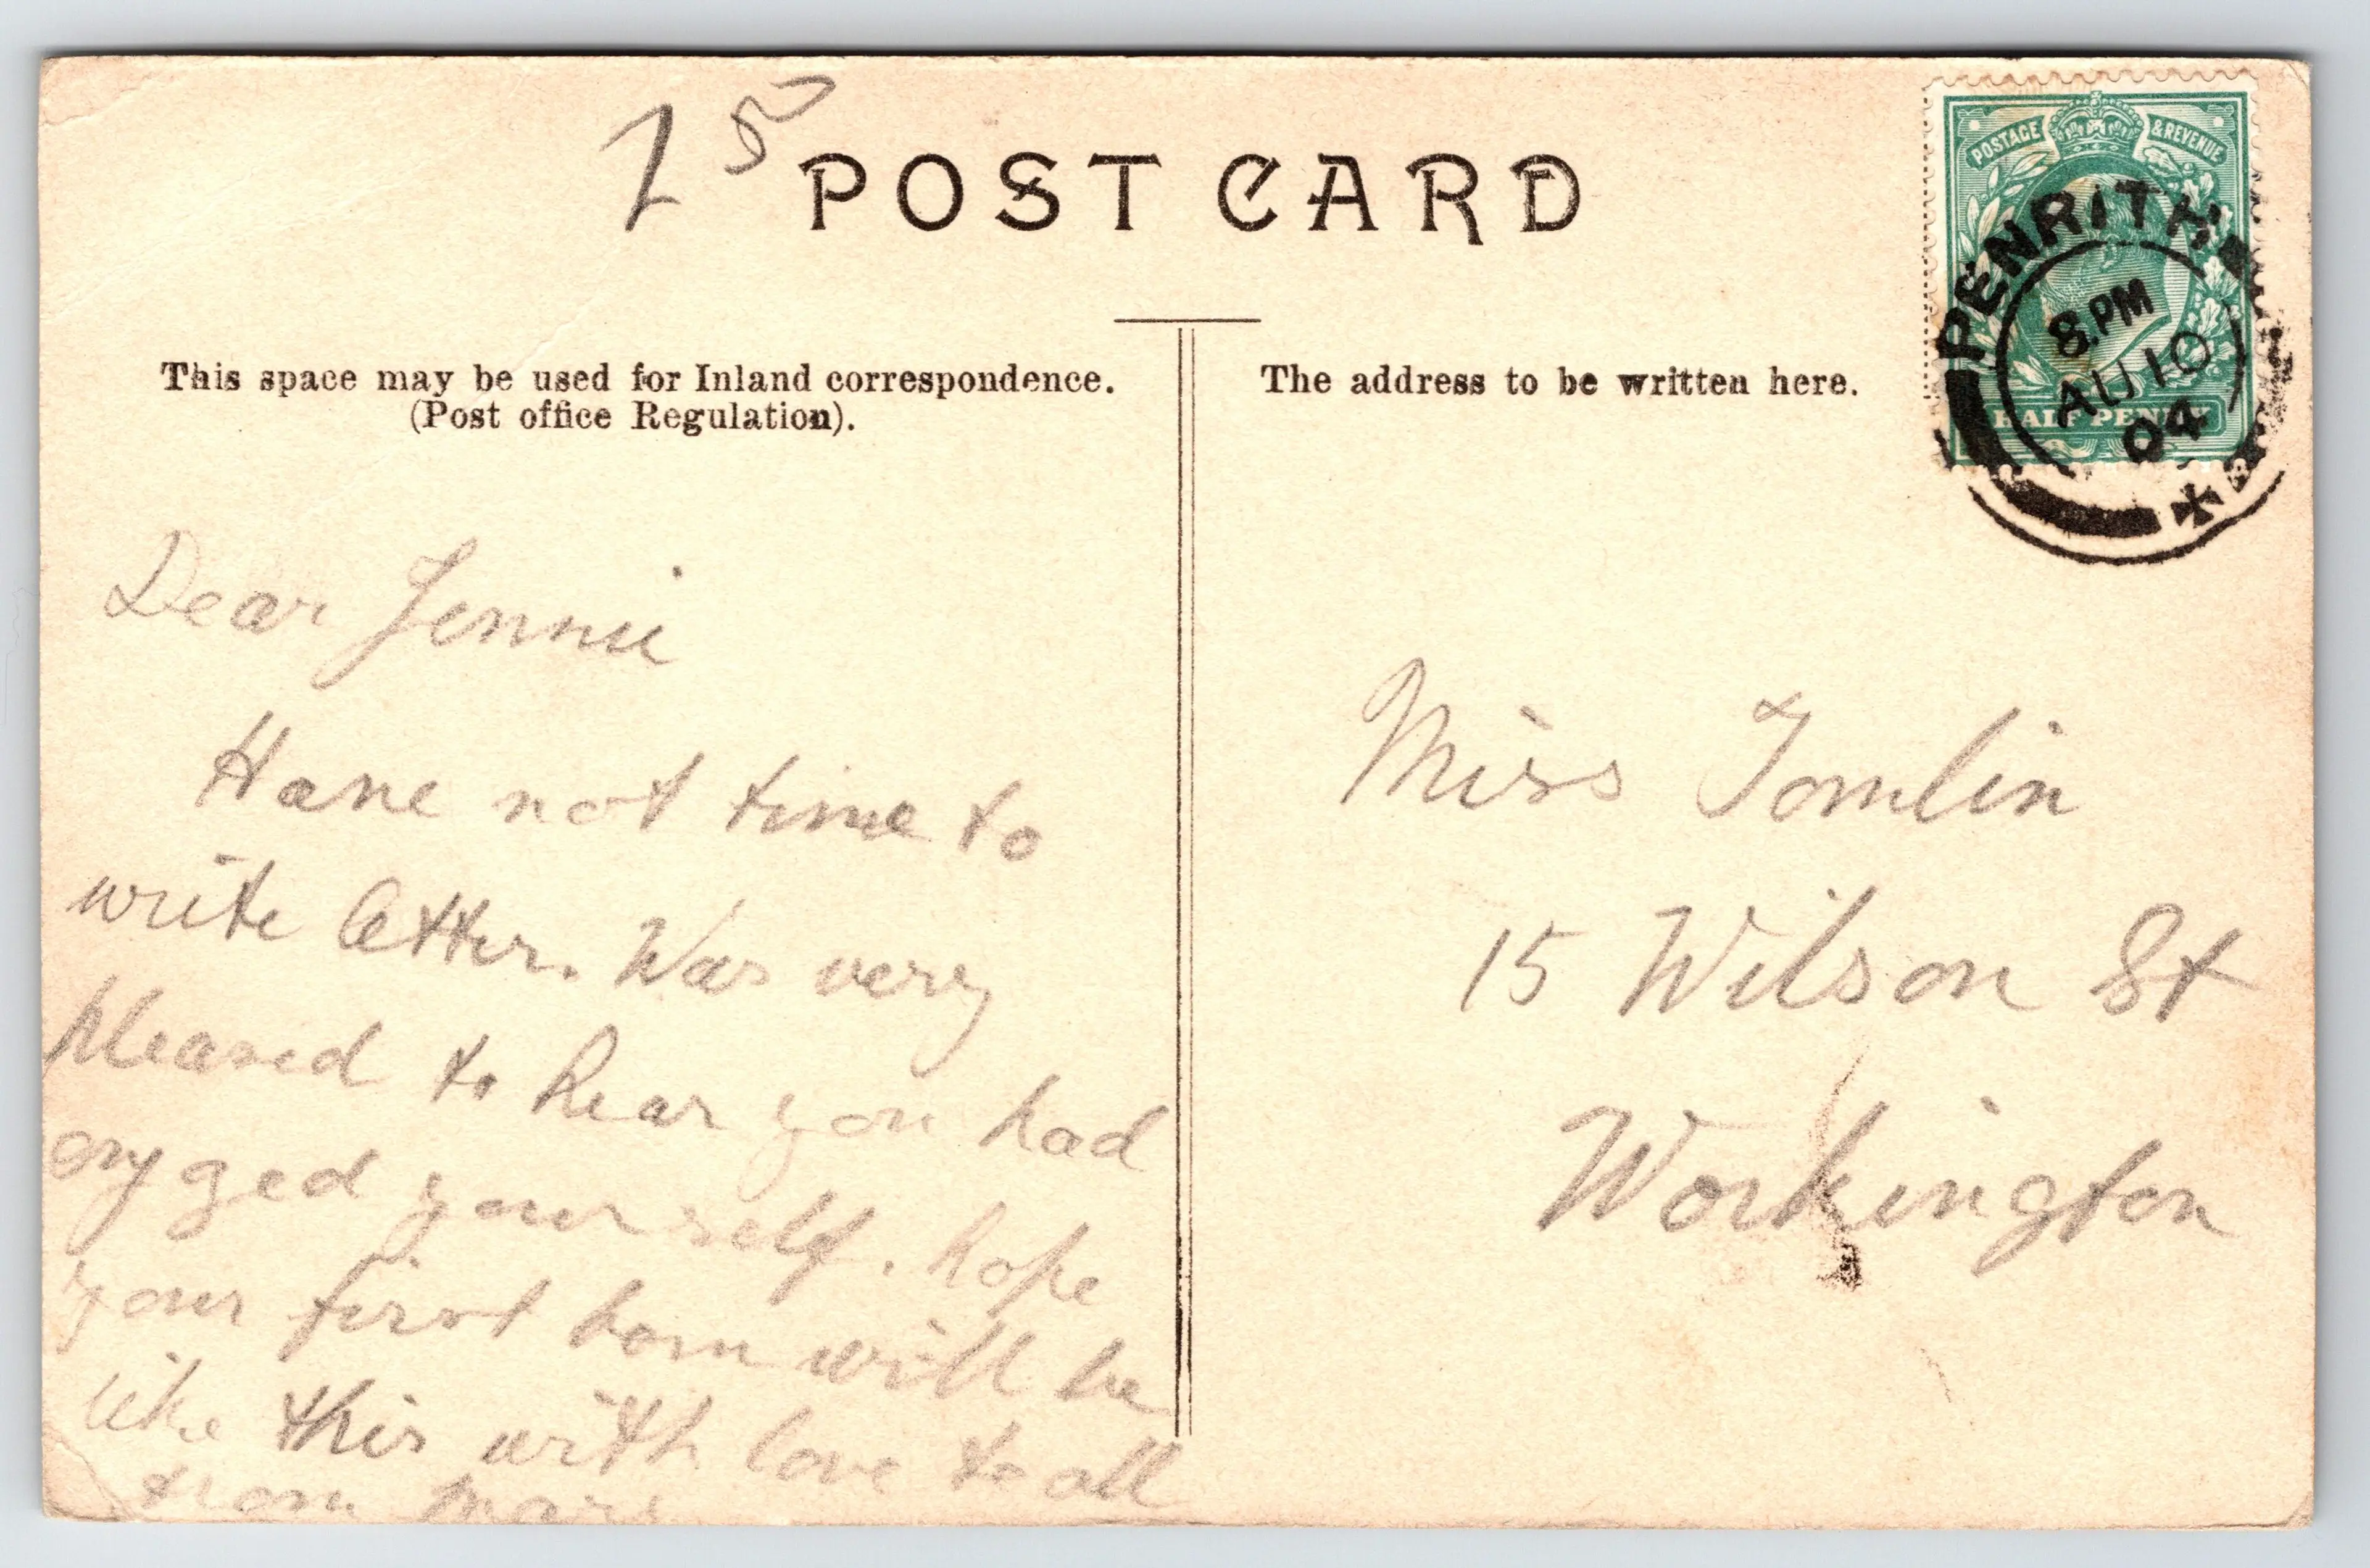 1 5
POST CARD
POSTAGE & REVENUE
PENRITH
8.PM
AU 10
04
HALF PENNY
This space may be used for Inland correspondence.
(Post office Regulation).
The address to be written here.
Dear Jennie
Have not time to
write letter. Was very
pleased to hear you had
enyged yourself. hope
your first born will be
like this with love to all
from
Miss Tomlin
15 Wilson St
Workington